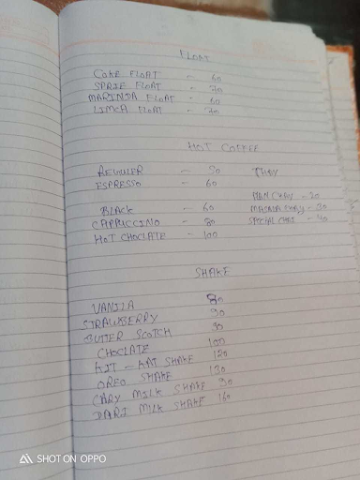 FLOAT
COKE FLOAT - 60
SPRIE FLOAT - 70
MARINDA FLOAT - 60
LIMCA FLOAT - 70
HOT COFFEE
REWULER - 50
ESPRESSO - 60
BLACK - 60
CAPPUCCINO - 80
HOT CHOCLATE - 100
- 20
MASALA - 30
SPECIAL - 40
SHAKE
VANILA 80
STRAWBERRY 90
BUTTER SCOTCH 90
CHOCLATE 100
KIT - KAT SHAKE 120
OREO SHAKE 130
MILK SHAKE 90
DARI MILK SHAKE 160
SHOT ON OPPO